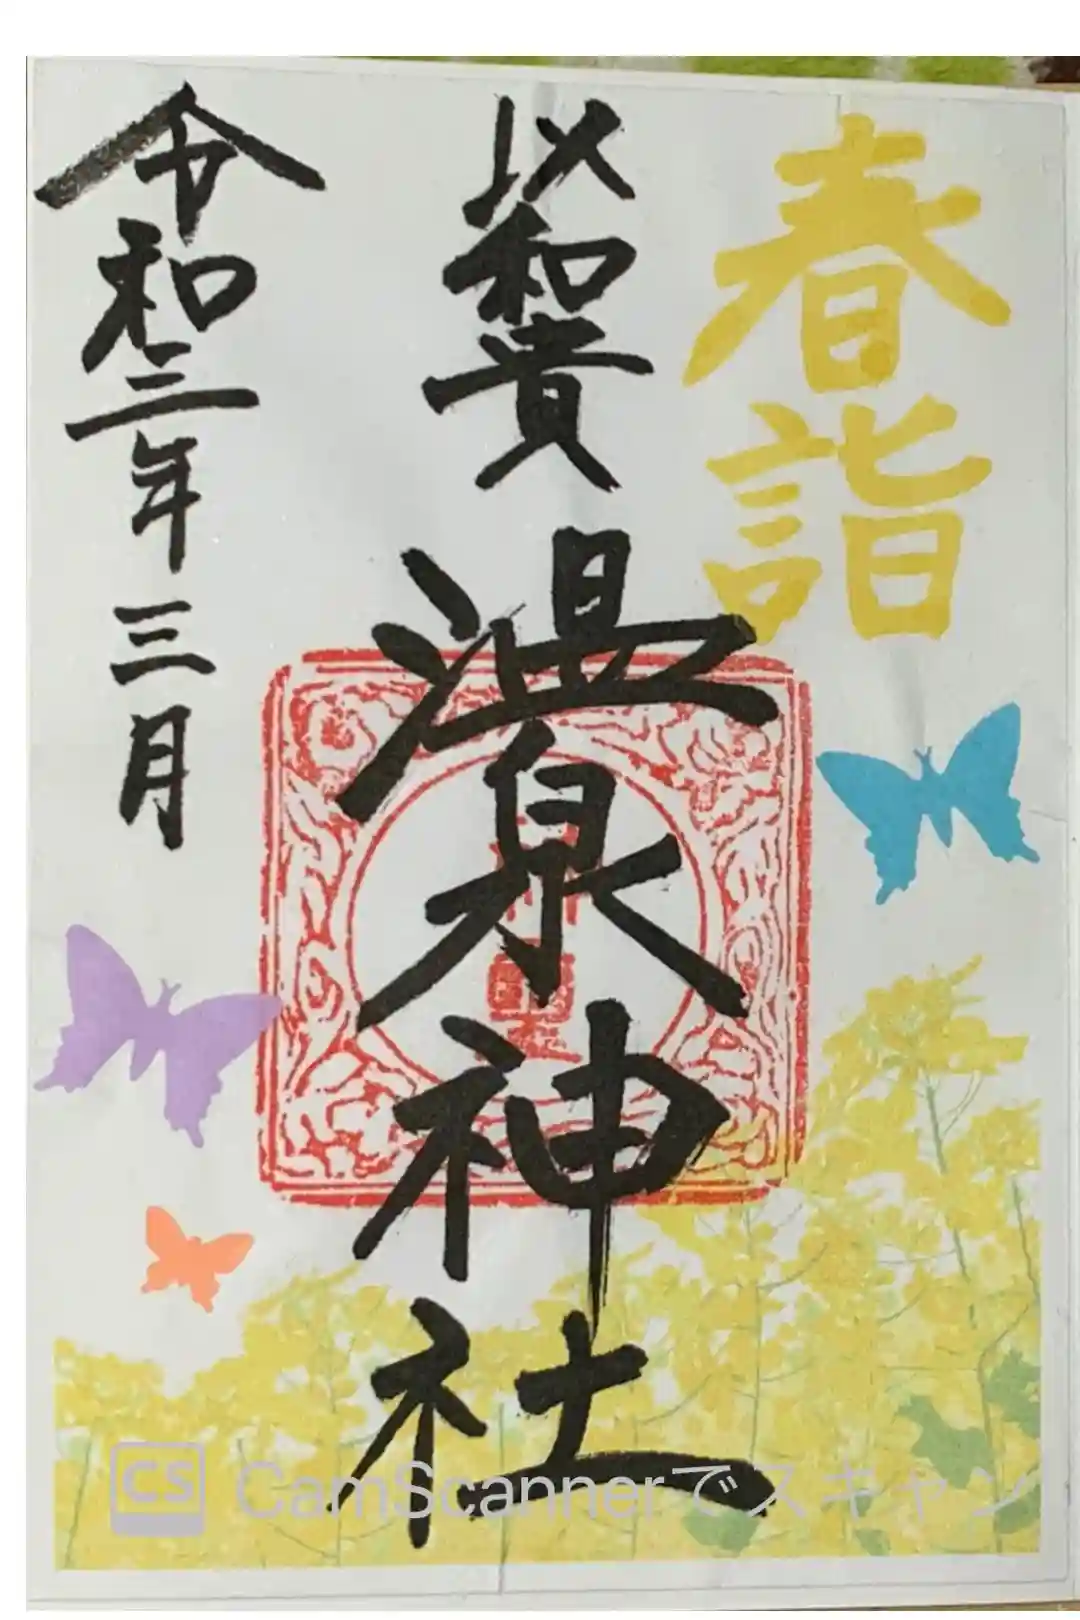 春詣
以和貴
温泉神社
令和三年三月
CS CamScannerでスキャン